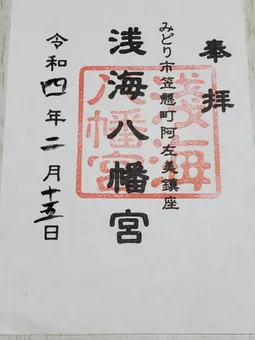 奉拝
みどり市笠懸町阿左美鎮座
浅海八幡宮
浅海八幡宮
令和四年二月十五日